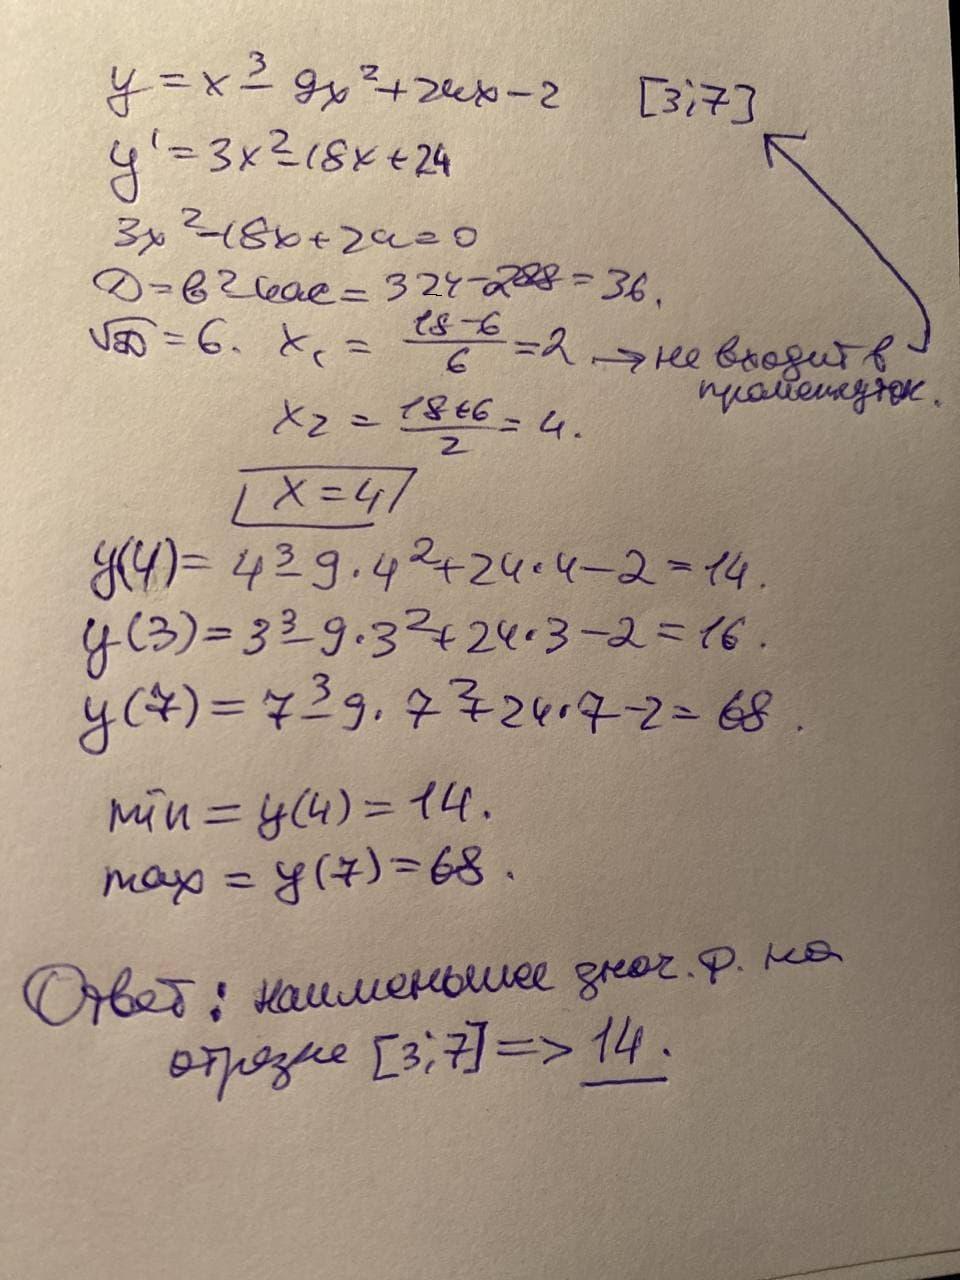 y = x³ - 9x² + 24x - 2 [3;7]
y' = 3x² - 18x + 24
3x² - 18x + 24 = 0
D = b² - 4ac = 324 - 288 = 36.
√D = 6. x₁ = (18-6)/6 = 2 → не входит в
промежуток.
x₂ = (18+6)/2 = 4.
x = 4
y(4) = 4³ - 9·4² + 24·4 - 2 = 14.
y(3) = 3³ - 9·3² + 24·3 - 2 = 16.
y(7) = 7³ - 9·7² + 24·7 - 2 = 68.
min = y(4) = 14.
max = y(7) = 68.
Ответ: наименьшее знач. ф. на
отрезке [3;7] => 14.